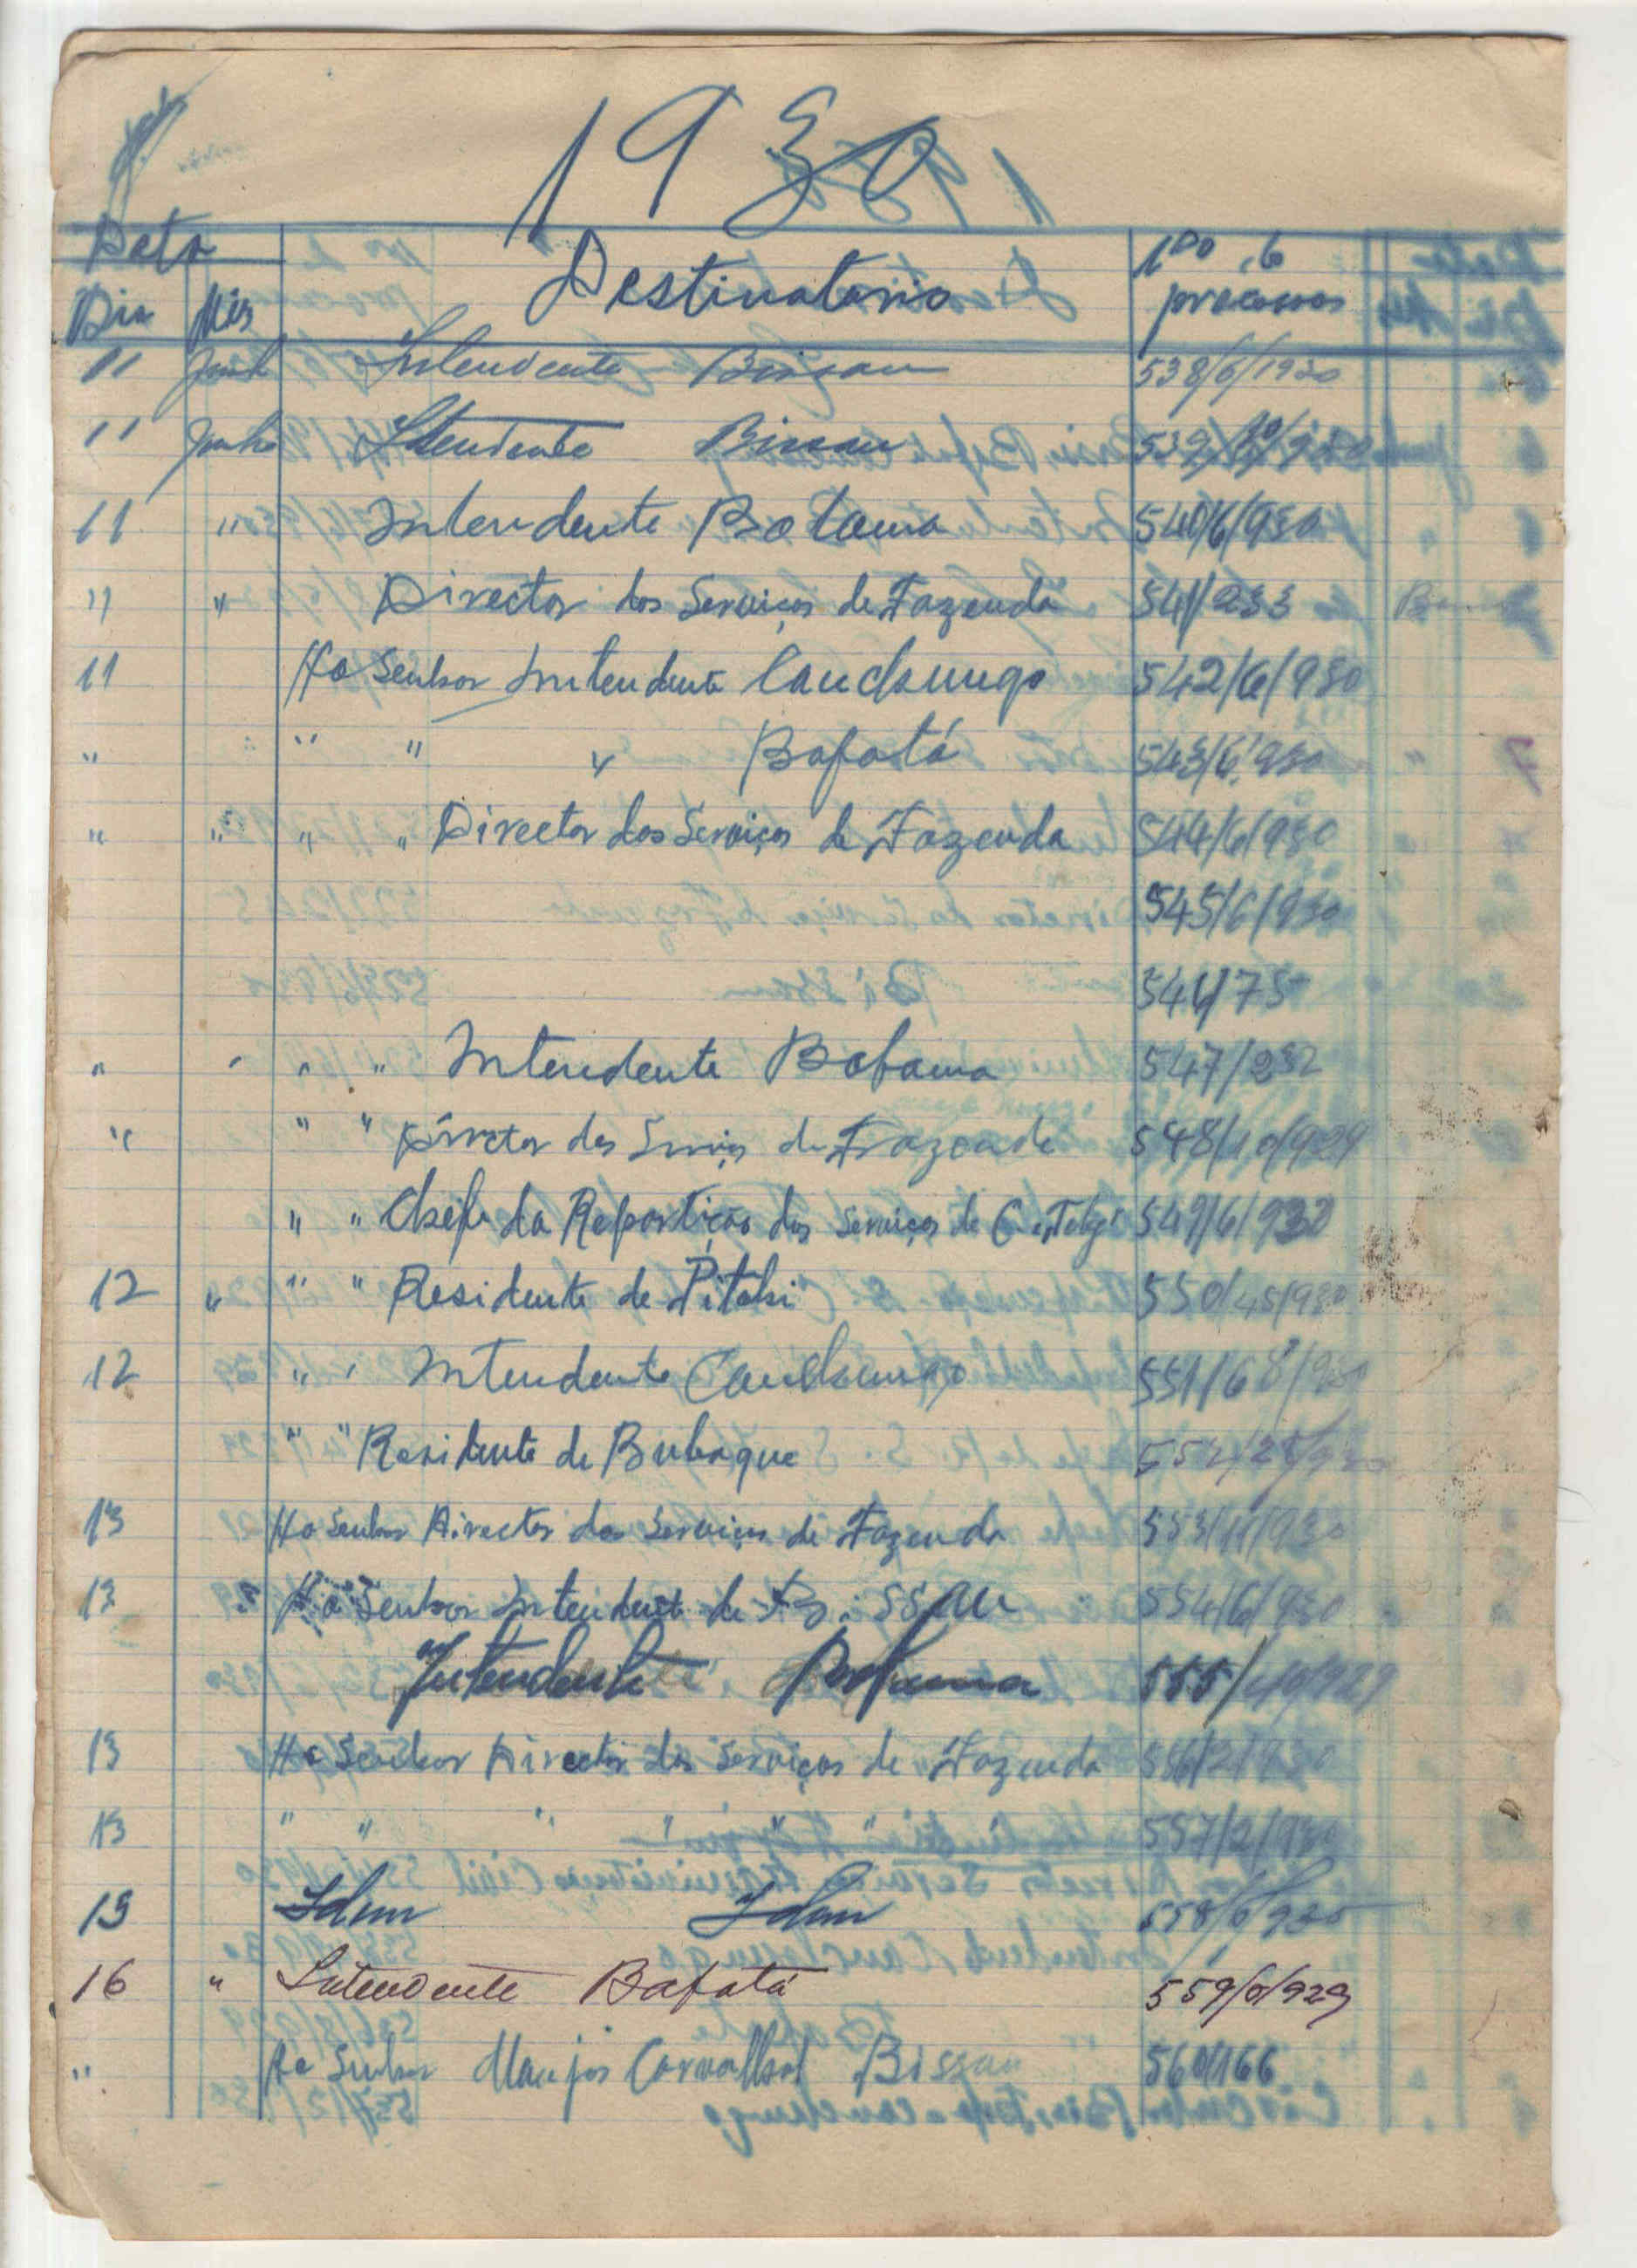 1930
Data
Destinatario
Nº do
Dia Mês
processos
11 Junho Intendente Bissau 538/6/1930
11 Junho Intendente Bissau 539/10/930
11 " Intendente Bolama 540/6/930
11 " Director dos Serviços de Fazenda 541/233
11 Ao Senhor Intendente Canchungo 542/6/930
" " " " " Bafatá 543/6/930
" " " " Director dos Serviços de Fazenda 544/6/930
545/6/930
546/75
" " " " Intendente Bolama 547/232
" " " Director dos Serviços de Fazenda 548/10/929
" " Chefe da Repartição dos Serviços de C. e Telgs 549/6/930
12 " " " Residente de Pitchi 550/45/930
12 " " Intendente Canchungo 551/68/930
" " Residente de Bubaque 552/28/930
13 Ao Senhor Director dos Serviços de Fazenda 553/11/930
13 " Ao Senhor Intendente de Bissau 554/6/930
Intendente Bolama 555/10/929
13 Ao Senhor Director dos Serviços de Fazenda 556/2/930
13 " " " " " " 557/2/930
13 Idem Idem 558/6/930
16 " Intendente Bafatá 559/6/929
" Ao Senhor Carvalho Bissau 560/166